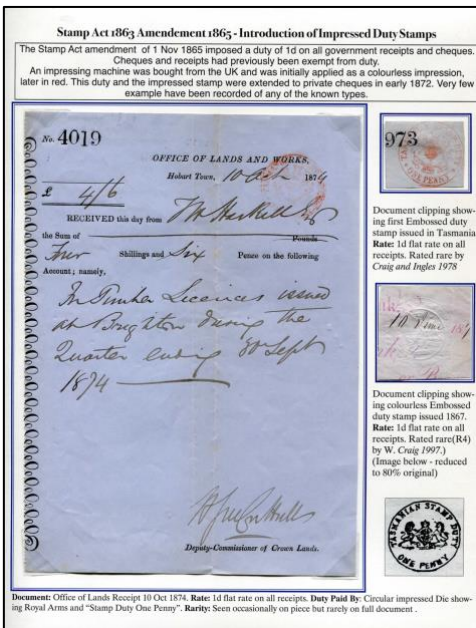 Stamp Act 1863 Amendement 1865 - Introduction of Impressed Duty Stamps
The Stamp Act amendment of 1 Nov 1865 imposed a duty of 1d on all government receipts and cheques.
Cheques and receipts had previously been exempt from duty.
An impressing machine was bought from the UK and was initially applied as a colourless impression,
later in red. This duty and the impressed stamp were extended to private cheques in early 1872. Very few
example have been recorded of any of the known types.
No. 4019
OFFICE OF LANDS AND WORKS,
Hobart Town, 10 Oct 1874
£ 4/6
RECEIVED this day from
the Sum of Pounds
Four Shillings and Six Pence on the following
Account; namely,
In Timber Licences issued
at Brighton during the
Quarter ending 30 Sept
1874
Deputy-Commissioner of Crown Lands.
973
ONE PENNY
Document clipping show-
ing first Embossed duty
stamp issued in Tasmania
Rate: 1d flat rate on all
receipts. Rated rare by
Craig and Ingles 1978
10 187
Document clipping show-
ing colourless Embossed
duty stamp issued 1867.
Rate: 1d flat rate on all
receipts. Rated rare(R4)
by W. Craig 1997.)
(Image below - reduced
to 80% original)
TASMANIAN STAMP DUTY
ONE PENNY
Document: Office of Lands Receipt 10 Oct 1874. Rate: 1d flat rate on all receipts. Duty Paid By: Circular impressed Die show-
ing Royal Arms and “Stamp Duty One Penny”. Rarity: Seen occasionally on piece but rarely on full document .